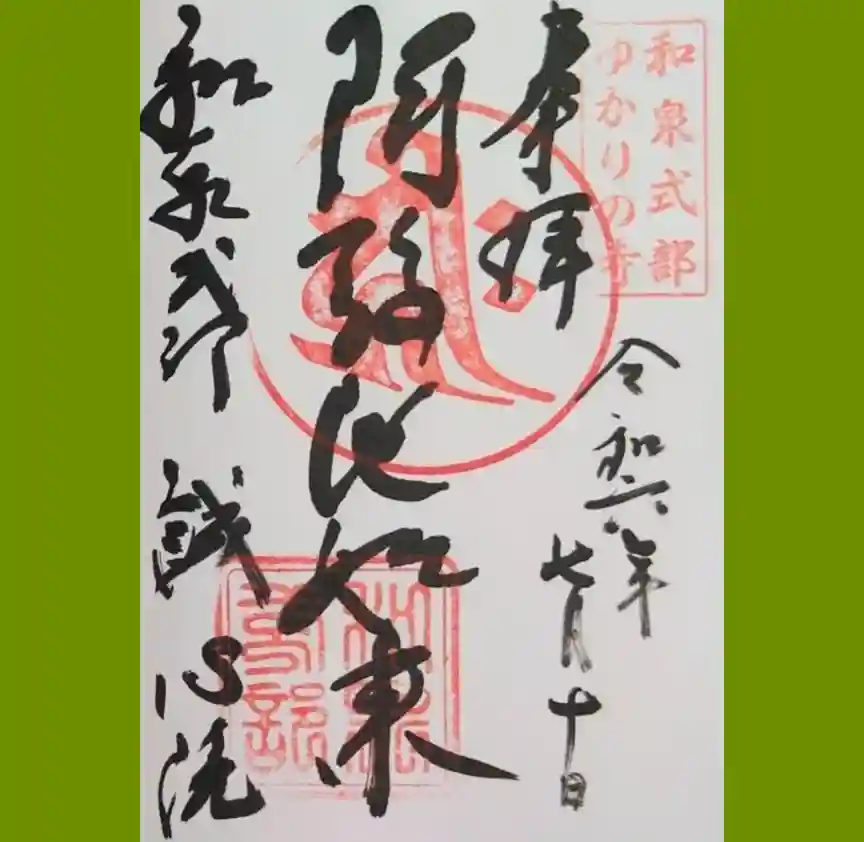 和泉式部
ゆかりの寺
奉拝
令和六年
七月十日
阿弥陀如来
和泉式部 誠心院